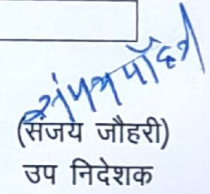 (संजय जौहरी)
उप निदेशक